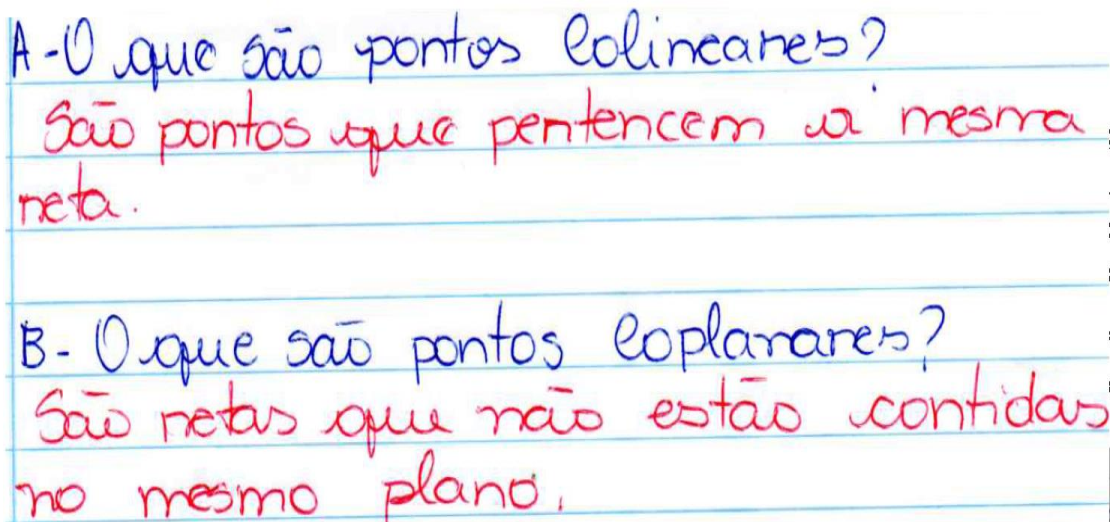 A-O que são pontos colineares?
São pontos que pertencem a mesma
reta.
B- O que são pontos coplanares?
São retas que não estão contidas
no mesmo plano.